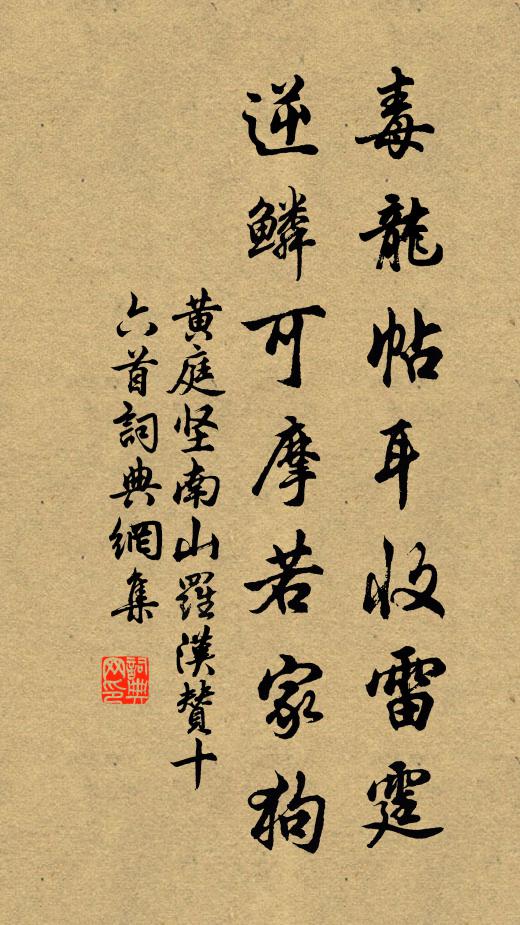 毒龍帖耳收雷霆
逆鱗可摩若家狗
黄庭坚南山羅漢贊十
六首詞典網集
詞典网印